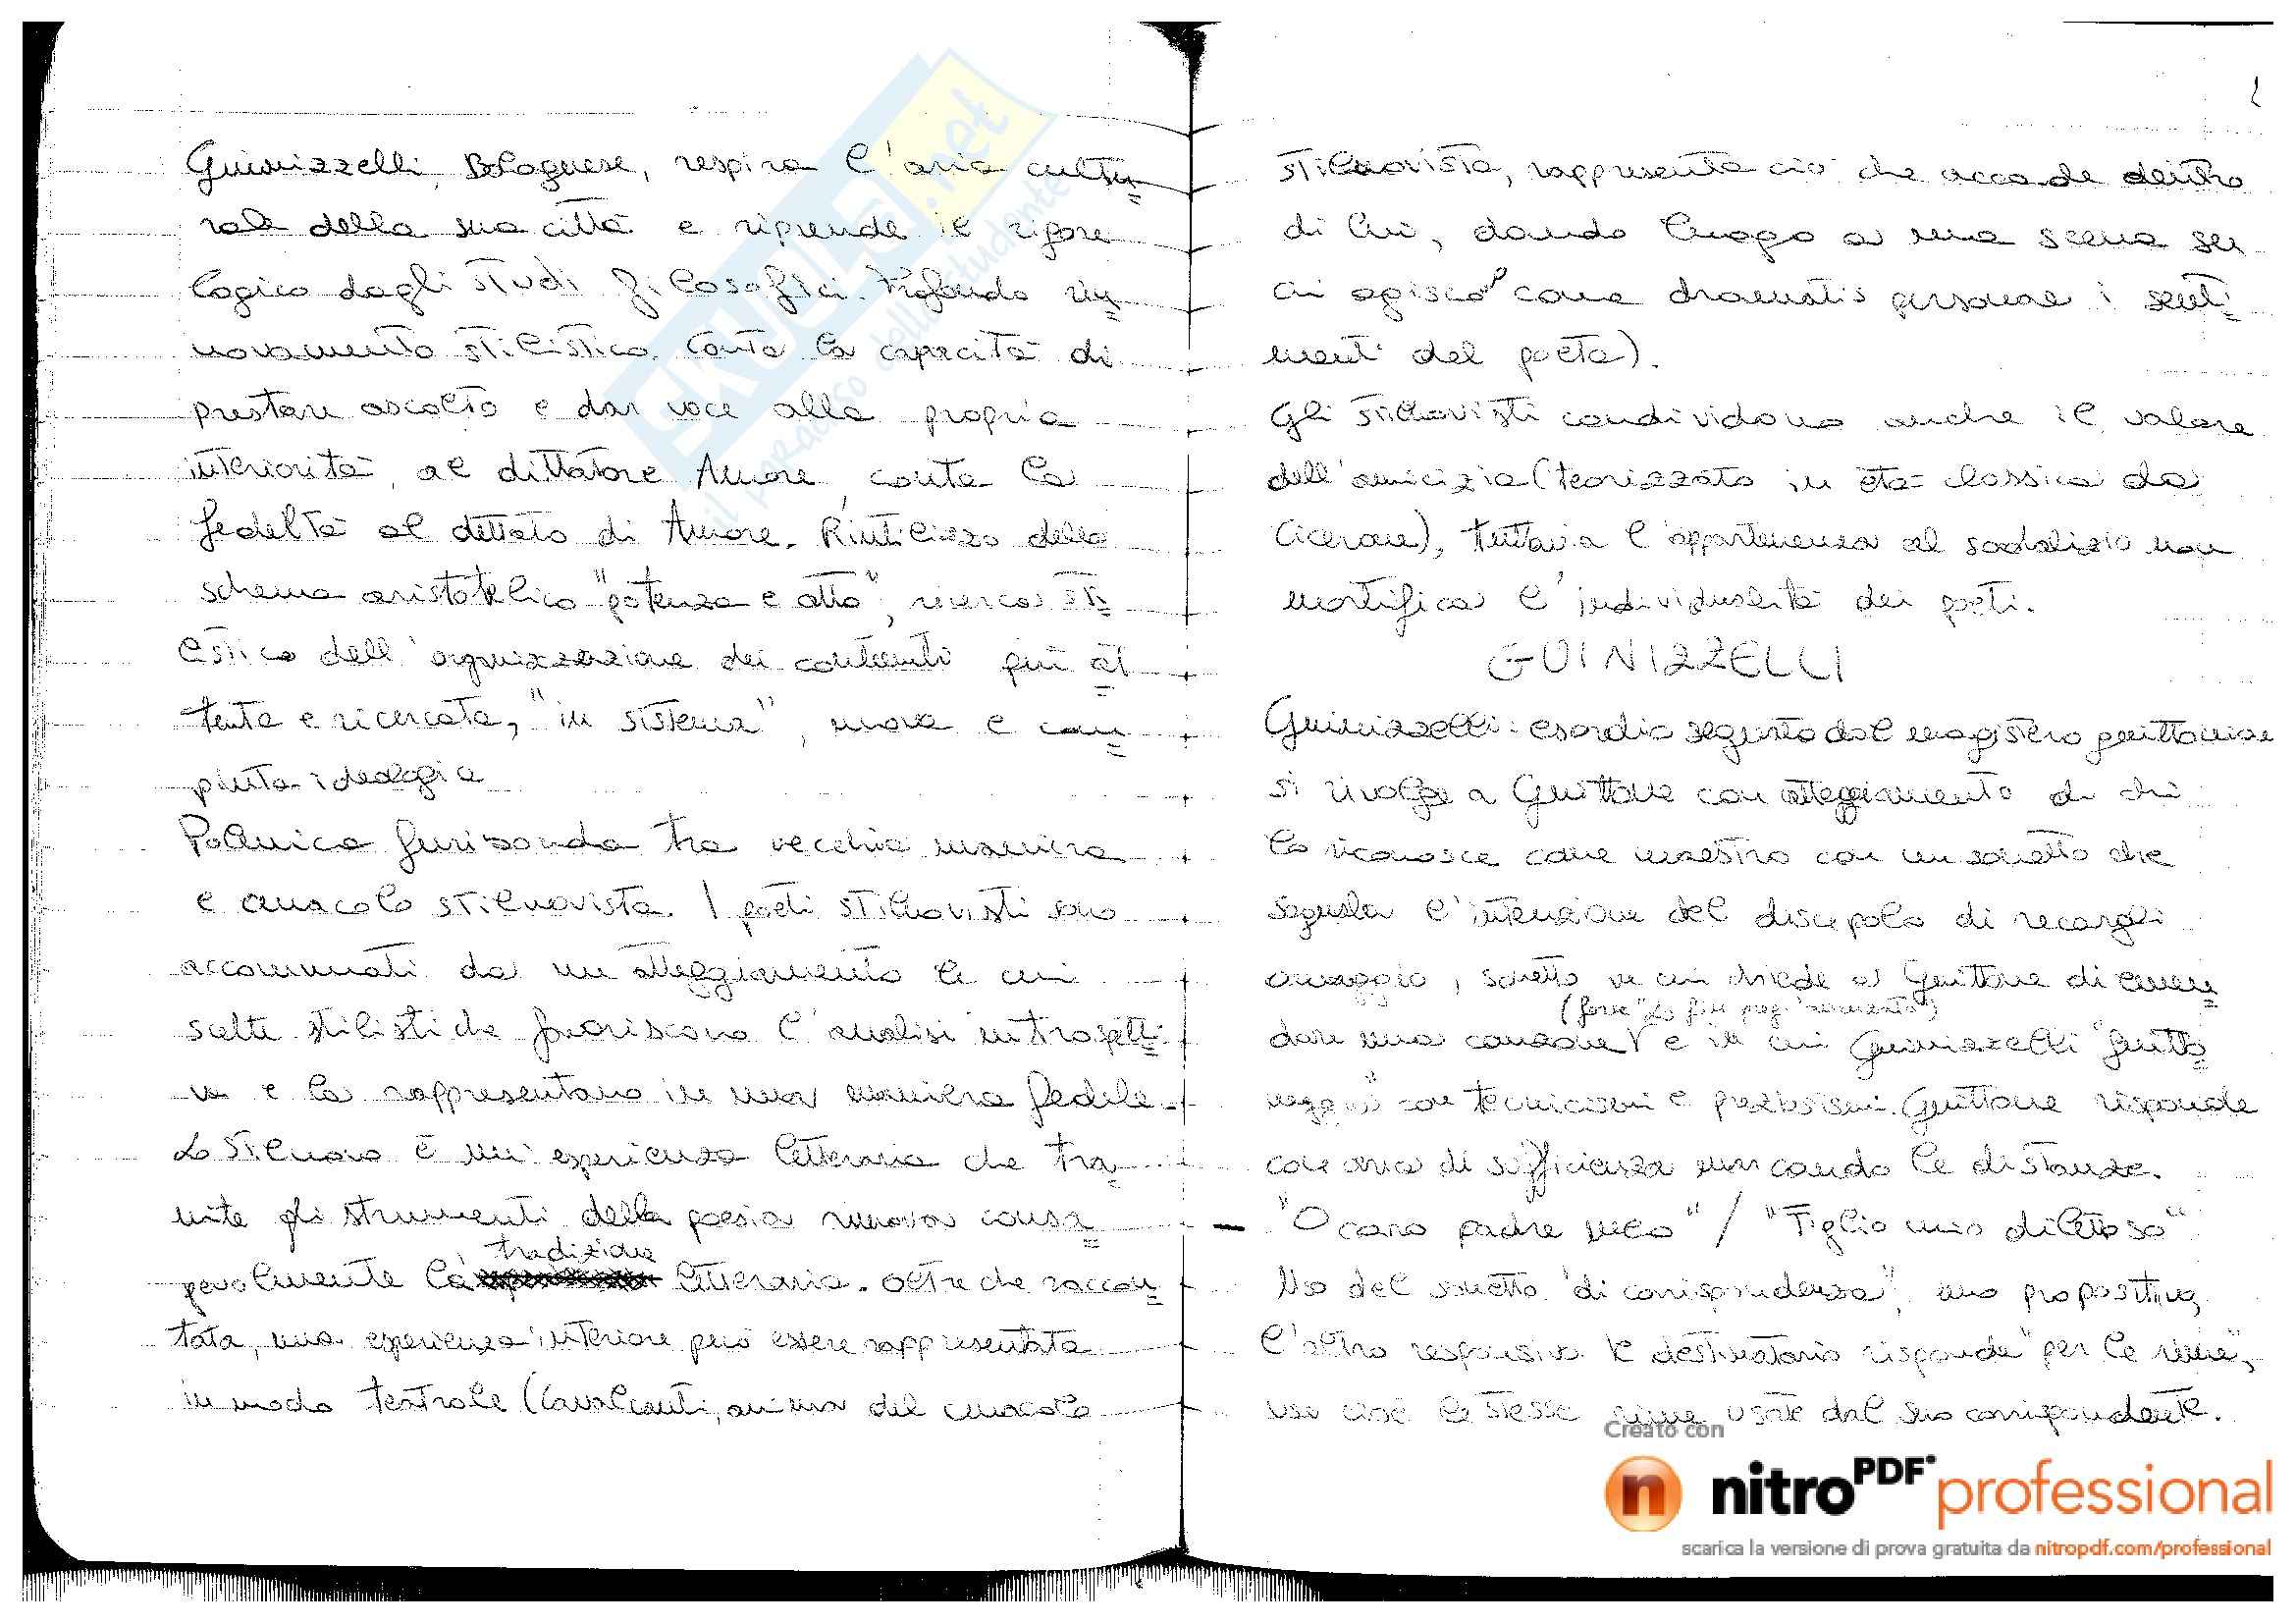 Guinizzelli, Bolognese, respira l'aria cultu=
rale della sua città e riprende il rigore
logico dagli studi filosofici. Profondo rin=
novamento stilistico. Conta la capacità di
prestare ascolto e dar voce alla propria
interiorità, al dittatore Amore, conta la
fedeltà al dettato di Amore. Riutilizzo dello
schema aristotelico "potenza e atto", ricerca sti
listica dell'organizzazione dei contenuti più at=
tenta e ricercata, "in sistema", nuova e com=
piuta ideologia
Polemica furibonda tra vecchia maniera
e cenacolo stilnovista. I poeti stilnovisti sono
accomunati da un atteggiamento le cui
scelte stilistiche favoriscono l'analisi introspetti=
va e la rappresentano in una maniera fedele.
Lo Stilnovo è un'esperienza letteraria che tra=
mite gli strumenti della poesia rinnova consa=
pevolmente la tradizione letteraria. Oltre che raccon=
tata, una esperienza interiore può essere rappresentata
in modo teatrale (Cavalcanti, anima del cenacolo
stilnovista, rappresenta ciò che accade dentro
di lui, dando luogo a una scena su
cui agisco come dramatis personae i senti=
menti del poeta).
Gli stilnovisti condividono anche il valore
dell'amicizia (teorizzato in età classica da
Cicerone), tuttavia l'appartenenza al sodalizio non
mortifica l'individualità dei poeti.
GUINIZZELLI
Guinizzelli: esordio segnato dal magistero guittoniano
si rivolge a Guittone con atteggiamento di chi
lo riconosce come maestro con un sonetto che
segnala l'intenzione del discepolo di recargli
omaggio, sonetto in cui chiede a Guittone di emen=
(forse "Lo fin pregi avanzato")
dare una canzone e in cui Guinizzelli "guitto=
neggia" con tecnicismi e preziosismi. Guittone risponde
con aria di sufficienza marcando le distanze.
– "O caro padre meo" / "Figlio mio dilettoso"
Uso del sonetto "di corrispondenza", uno propositivo,
l'altro responsivo. Il destinatario risponde "per le rime",
usa cioè le stesse rime usate dal suo corrispondente.
SKUOLA.net
il paradiso dello studente
Creato con
nitroPDF professional
scarica la versione di prova gratuita da nitropdf.com/professional